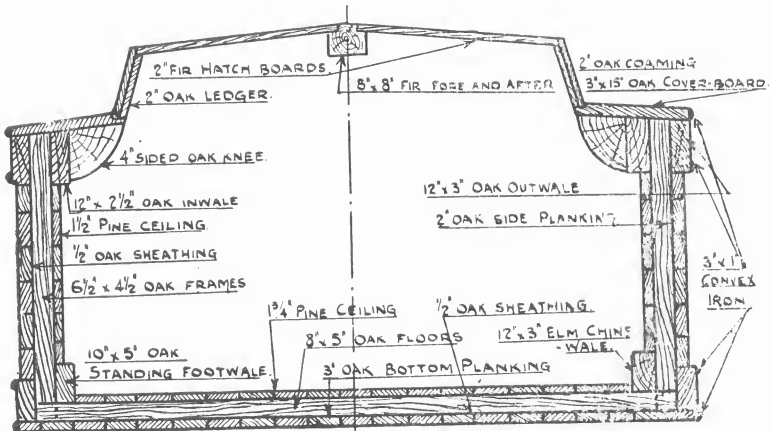 2" FIR HATCH BOARDS.
2" OAK LEDGER.
8" x 8" FIR FORE AND AFTER
2" OAK COAMING
3" x 15" OAK COVER-BOARD.
4" SIDED OAK KNEE.
12" x 2½" OAK INWALE
1½" PINE CEILING.
½" OAK SHEATHING
6½" x 4½" OAK FRAMES
12" x 3" OAK OUTWALE
2" OAK SIDE PLANKING
3" x 1"
CONVEX
IRON
1¾" PINE CEILING
½" OAK SHEATHING.
8" x 5" OAK FLOORS
12" x 3" ELM CHINE
-WALE.
10" x 5" OAK
STANDING FOOTWALE.
3" OAK BOTTOM PLANKING